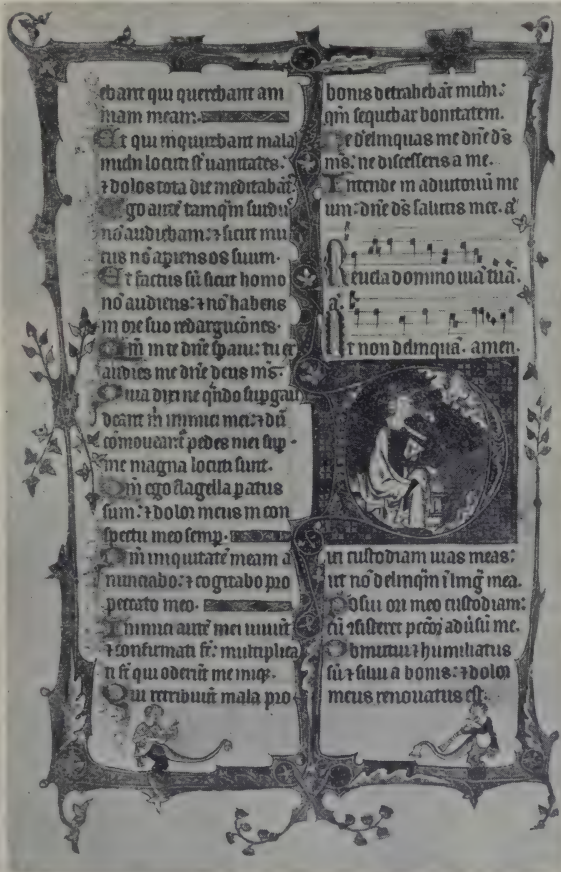 ebant qui querebant am
mam meam:
Et qui inquirebant mala
michi locuti st̄ uanitates:
⁊ dolos tota die meditabāt̄
Ego autē tamqm̄ surdus
nō audiebam: ⁊ sicut mu
tus nō apiens os suum.
Et factus sū sicut homo
nō audiens: ⁊ nō habens
in ore suo redargucōnes.
Qm̄ in te dn̄e spaui: tu ex
audies me dn̄e deus ms̄.
Quia dixi ne qn̄do supgau
deant m̄ inimici mei: ⁊ dū
cōmoueant̄ pedes mei sup
me magna locuti sunt.
Qm̄ ego flagella patus
sum: ⁊ dolor meus in con
spectu meo semp.
Qm̄ iniquitatē meam a
nunciabo: ⁊ cogitabo pro
peccato meo.
Inimici autē mei uiuūt
⁊ confirmati st̄: multiplica
ti st̄ qui oderūt me iniq̄.
Qui retribuūt mala pro
bonis detrahebāt michi:
qm̄ sequebar bonitatem.
Ne delinquas me dn̄e ds̄
ms̄: ne discesseris a me.
Intende in adiutoriū me
um: dn̄e ds̄ salutis mee. a̅
Reuela domino uiā tuā.
a̅.
Ut non delinquā. amen.
D
ixi custodiam uias meas:
ut nō delinqm̄ ī linḡ mea.
Posui ori meo custodiam:
cū ꝯsisteret pccōr adūsū me.
Obmutui ⁊ humiliatus
sū ⁊ silui a bonis: ⁊ dolor
meus renouatus est.